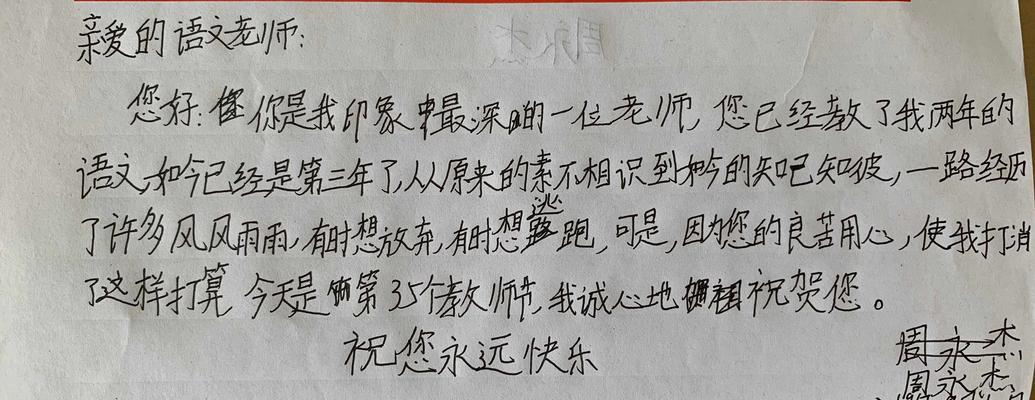 亲爱的语文老师:
您好:你是我印象中最深的一位老师,您已经教了我两年的
语文,如今已经是第三年了,从原来的素不相识到如今的知已知彼,一路经历
了许多风风雨雨,有时想放弃,有时想逃跑,可是,因为您的良苦用心,使我打消
了这样打算 今天是第35个教师节,我诚心地祝贺您。
祝您永远快乐
周永杰
周永杰